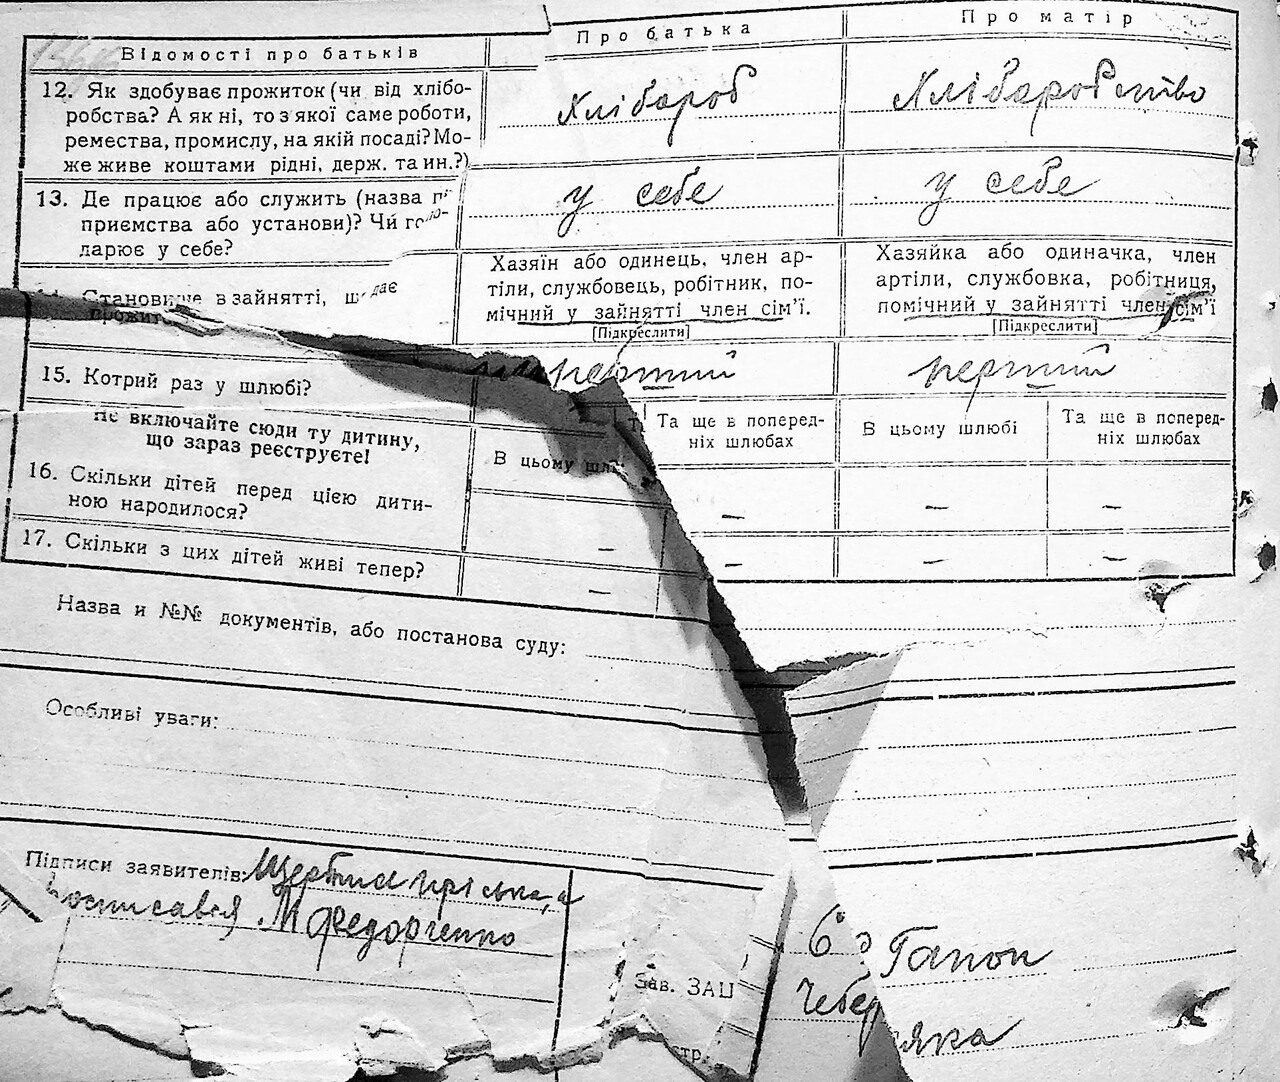 Відомості про батьків
Про батька
Про матір
12. Як здобуває прожиток (чи від хлібо-
робства? А як ні, то з якої саме роботи,
ремества, промислу, на якій посаді? Мо-
же живе коштами рідні, держ. та ин.?)
Хлібороб
Хліборобство
13. Де працює або служить (назва п
приємства або установи)? Чи го
ларює у себе?
у себе
у себе
Становище в зайнятті, що дає
прожиток
Хазяїн або одинець, член ар-
тіли, службовець, робітник, по-
мічний у зайнятті член сім'ї.
[Підкреслити]
Хазяйка або одиначка, член
артіли, службовка, робітниця,
помічний у зайнятті член сім'ї
[Підкреслити]
15. Котрий раз у шлюбі?
перший
перший
Не включайте сюди ту дитину,
що зараз реєструєте!
В цьому шлю
Та ще в поперед-
ніх шлюбах
В цьому шлюбі
Та ще в поперед-
ніх шлюбах
16. Скільки дітей перед цією дити-
ною народилося?
— — — —
17. Скільки з цих дітей живі тепер?
— — — —
Назва и №№ документів, або постанова суду:
Особливі уваги:
Підписи заявителів:
М Федорченко
Зав. ЗАЦ
Гапон